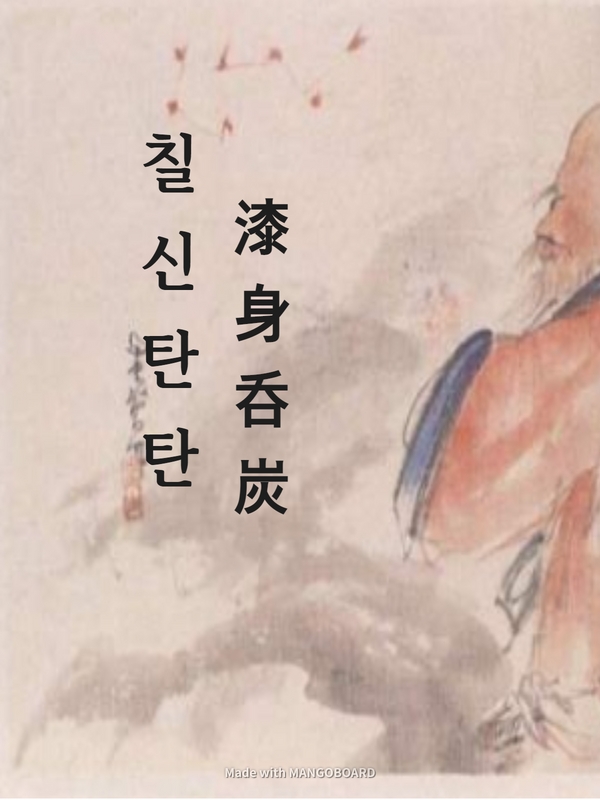 칠신탄탄
漆身呑炭
Made with MANGOBOARD